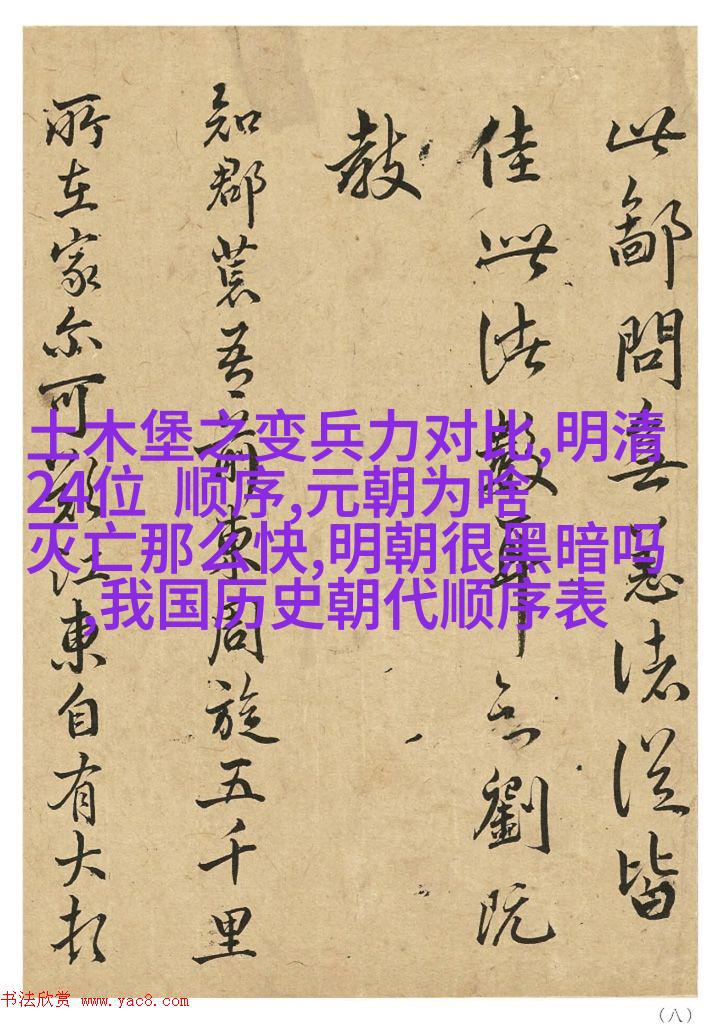 此鄙問無恙諸從皆
佳此法數耳 劉既
敎
知郡荒吾前東周旋五千里
所在家亦可 江東自有大
土木堡之变兵力对比,明清
24位 顺序,元朝为啥
灭亡那么快,明朝很黑暗吗
,我国历史朝代顺序表
书法欣赏 www.yac8.com
（八）